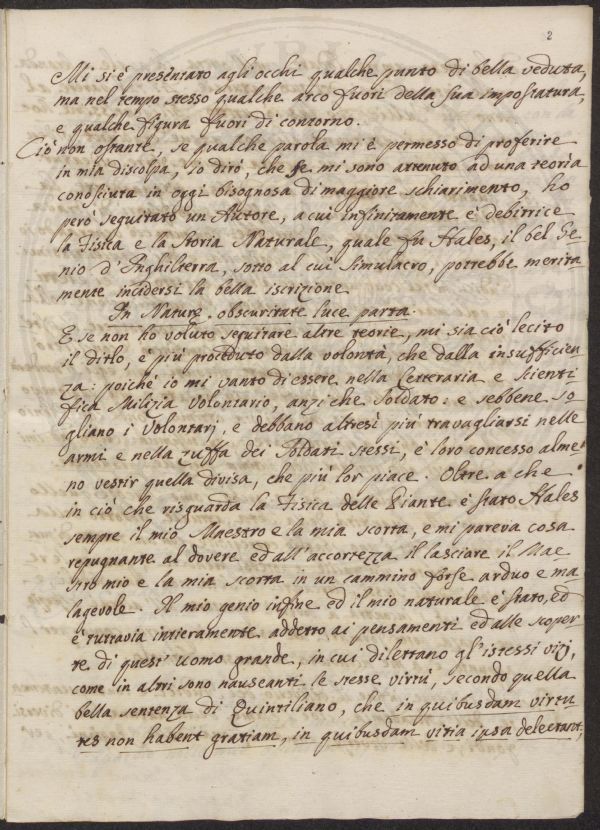 2
Mi si è presentato agli occhi qualche punto di bella veduta,
ma nel tempo stesso qualche arco fuori della sua impostatura,
e qualche figura fuori di contorno.
Ciò non ostante, se qualche parola mi è permesso di proferire
in mia discolpa, io dirò, che se mi sono attenuto ad una teoria
conosciuta in oggi bisognosa di maggiore schiarimento, ho
però seguitato un Autore, a cui infinitamente è debitrice
la Fisica e la Storia Naturale, quale fu Hales, il bel Ge
nio d'Inghilterra, sotto al cui Simulacro, potrebbe merita
mente incidersi la bella iscrizione
In Naturæ obscuritate luce parta.
E se non ho voluto seguitare altre teorie, mi sia ciò lecito
il dirlo, è più proceduto dalla volontà, che dalla insufficien
za: poichè io mi vanto di essere nella Letteraria e Scienti
fica Milizia Volontario, anzi che Soldato: e sebbene so
gliano i Volontarj, e debbano altresì più travagliarsi nelle
armi e nella zuffa dei Soldati stessi, è loro concesso alme
no vestir quella divisa, che più lor piace. Oltre a che
in ciò che risguarda la Fisica delle Piante è stato Hales
sempre il mio Maestro e la mia scorta, e mi pareva cosa
repugnante al dovere ed all'accortezza il lasciare il Mae
stro mio e la mia scorta in un cammino forse arduo e ma
lagevole. Il mio genio infine ed il mio naturale è stato, ed
è tuttavia intieramente addetto ai pensamenti ed alle scoper
te di quest' uomo grande, in cui dilettano gl'istessi vizj,
come in altri sono nauseanti le stesse virtù, secondo quella
bella sentenza di Quintiliano, che in quibusdam virtu
tes non habent gratiam, in quibusdam vitia ipsa delectant,